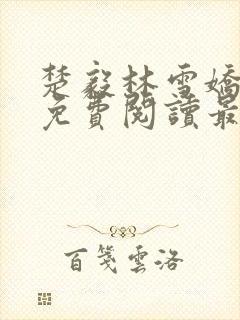 楚毅林雪嬌
免費閱讀最
百箋雲洛